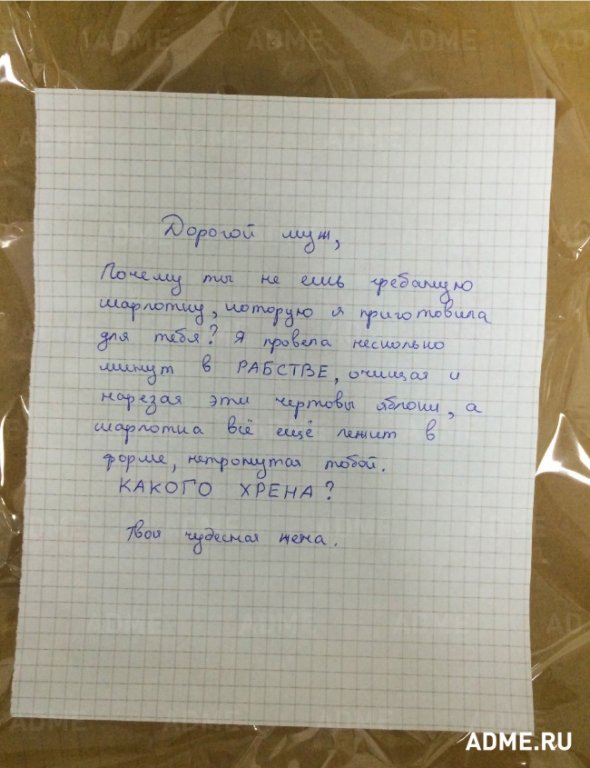 Дорогой муж,
Почему ты не ешь гребаную
шарлотку, которую я приготовила
для тебя? Я провела несколько
минут в РАБСТВЕ, очищая и
нарезая эти чертовы яблоки, а
шарлотка всё ещё лежит в
форме, нетронутая тобой.
КАКОГО ХРЕНА?
Твоя чудесная жена.
ADME.RU